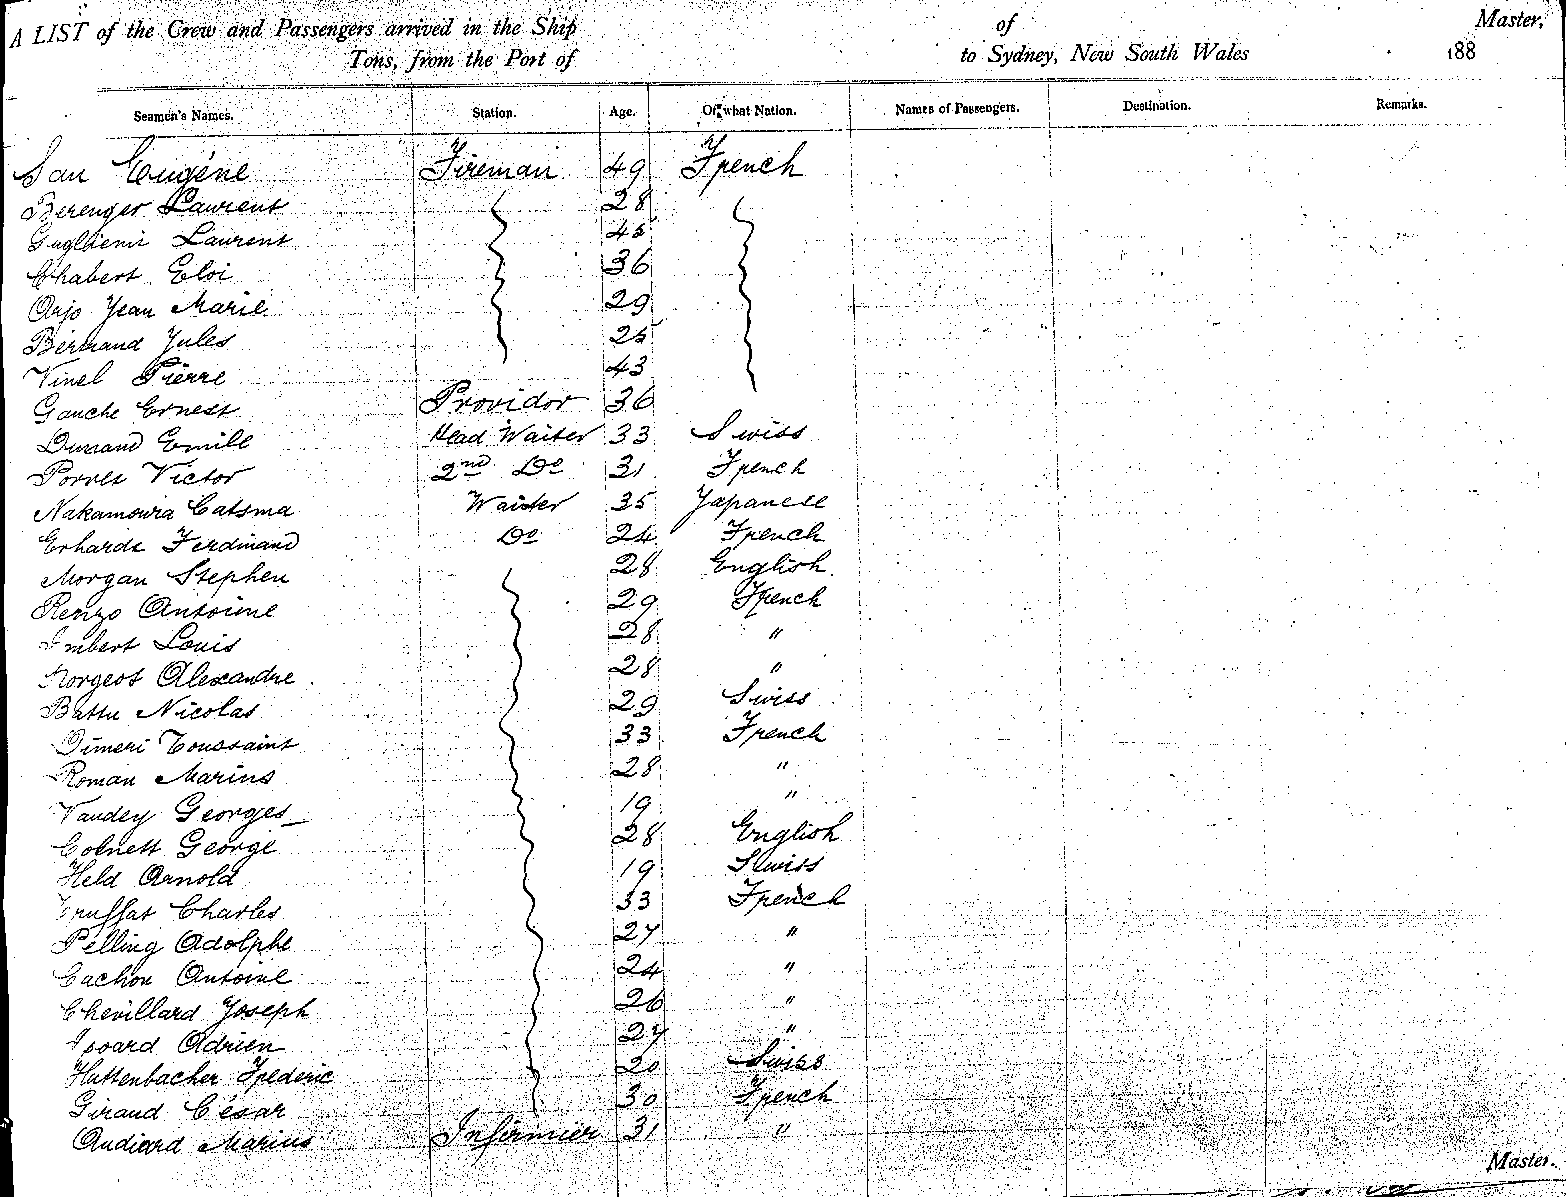 A LIST of the Crew and Passengers arrived in the Ship of Master,
Tons, from the Port of to Sydney, New South Wales 188
Seamen's Names. Station. Age. Of what Nation. Names of Passengers. Destination. Remarks.
San Eugène Fireman 49 French
Berenger Laurent 28
Guglielmi Laurent 45
Chabert Eloi 36
Orjo Jean Marie 29
Bernand Jules 25
Vinel Pierre 43
Gauche Ernest Providor 36
Durand Emile Head Waiter 33 Swiss
Porret Victor 2nd Do 31 French
Nakamoura Catsma Waiter 35 Japanese
Erhardt Ferdinand Do 24 French
Morgan Stephen 28 English
Renzo Antoine 29 French
Imbert Louis 28 "
Alexandre 28 "
Battu Nicolas 29 Swiss
Dimeri Toussaint 33 French
Roman Marius 28 "
Vaudey Georges 19 "
Colnett George 28 English
Held Arnold 19 Swiss
Truffat Charles 33 French
Pelling Adolphe 27 "
Cachon Antoine 24 "
Chevillard Joseph 26 "
Adrien 27 "
Huttenbacher Frederic 20 Swiss
Giraud César 30 French
Audiard Marius Infirmier 31 "
Master.